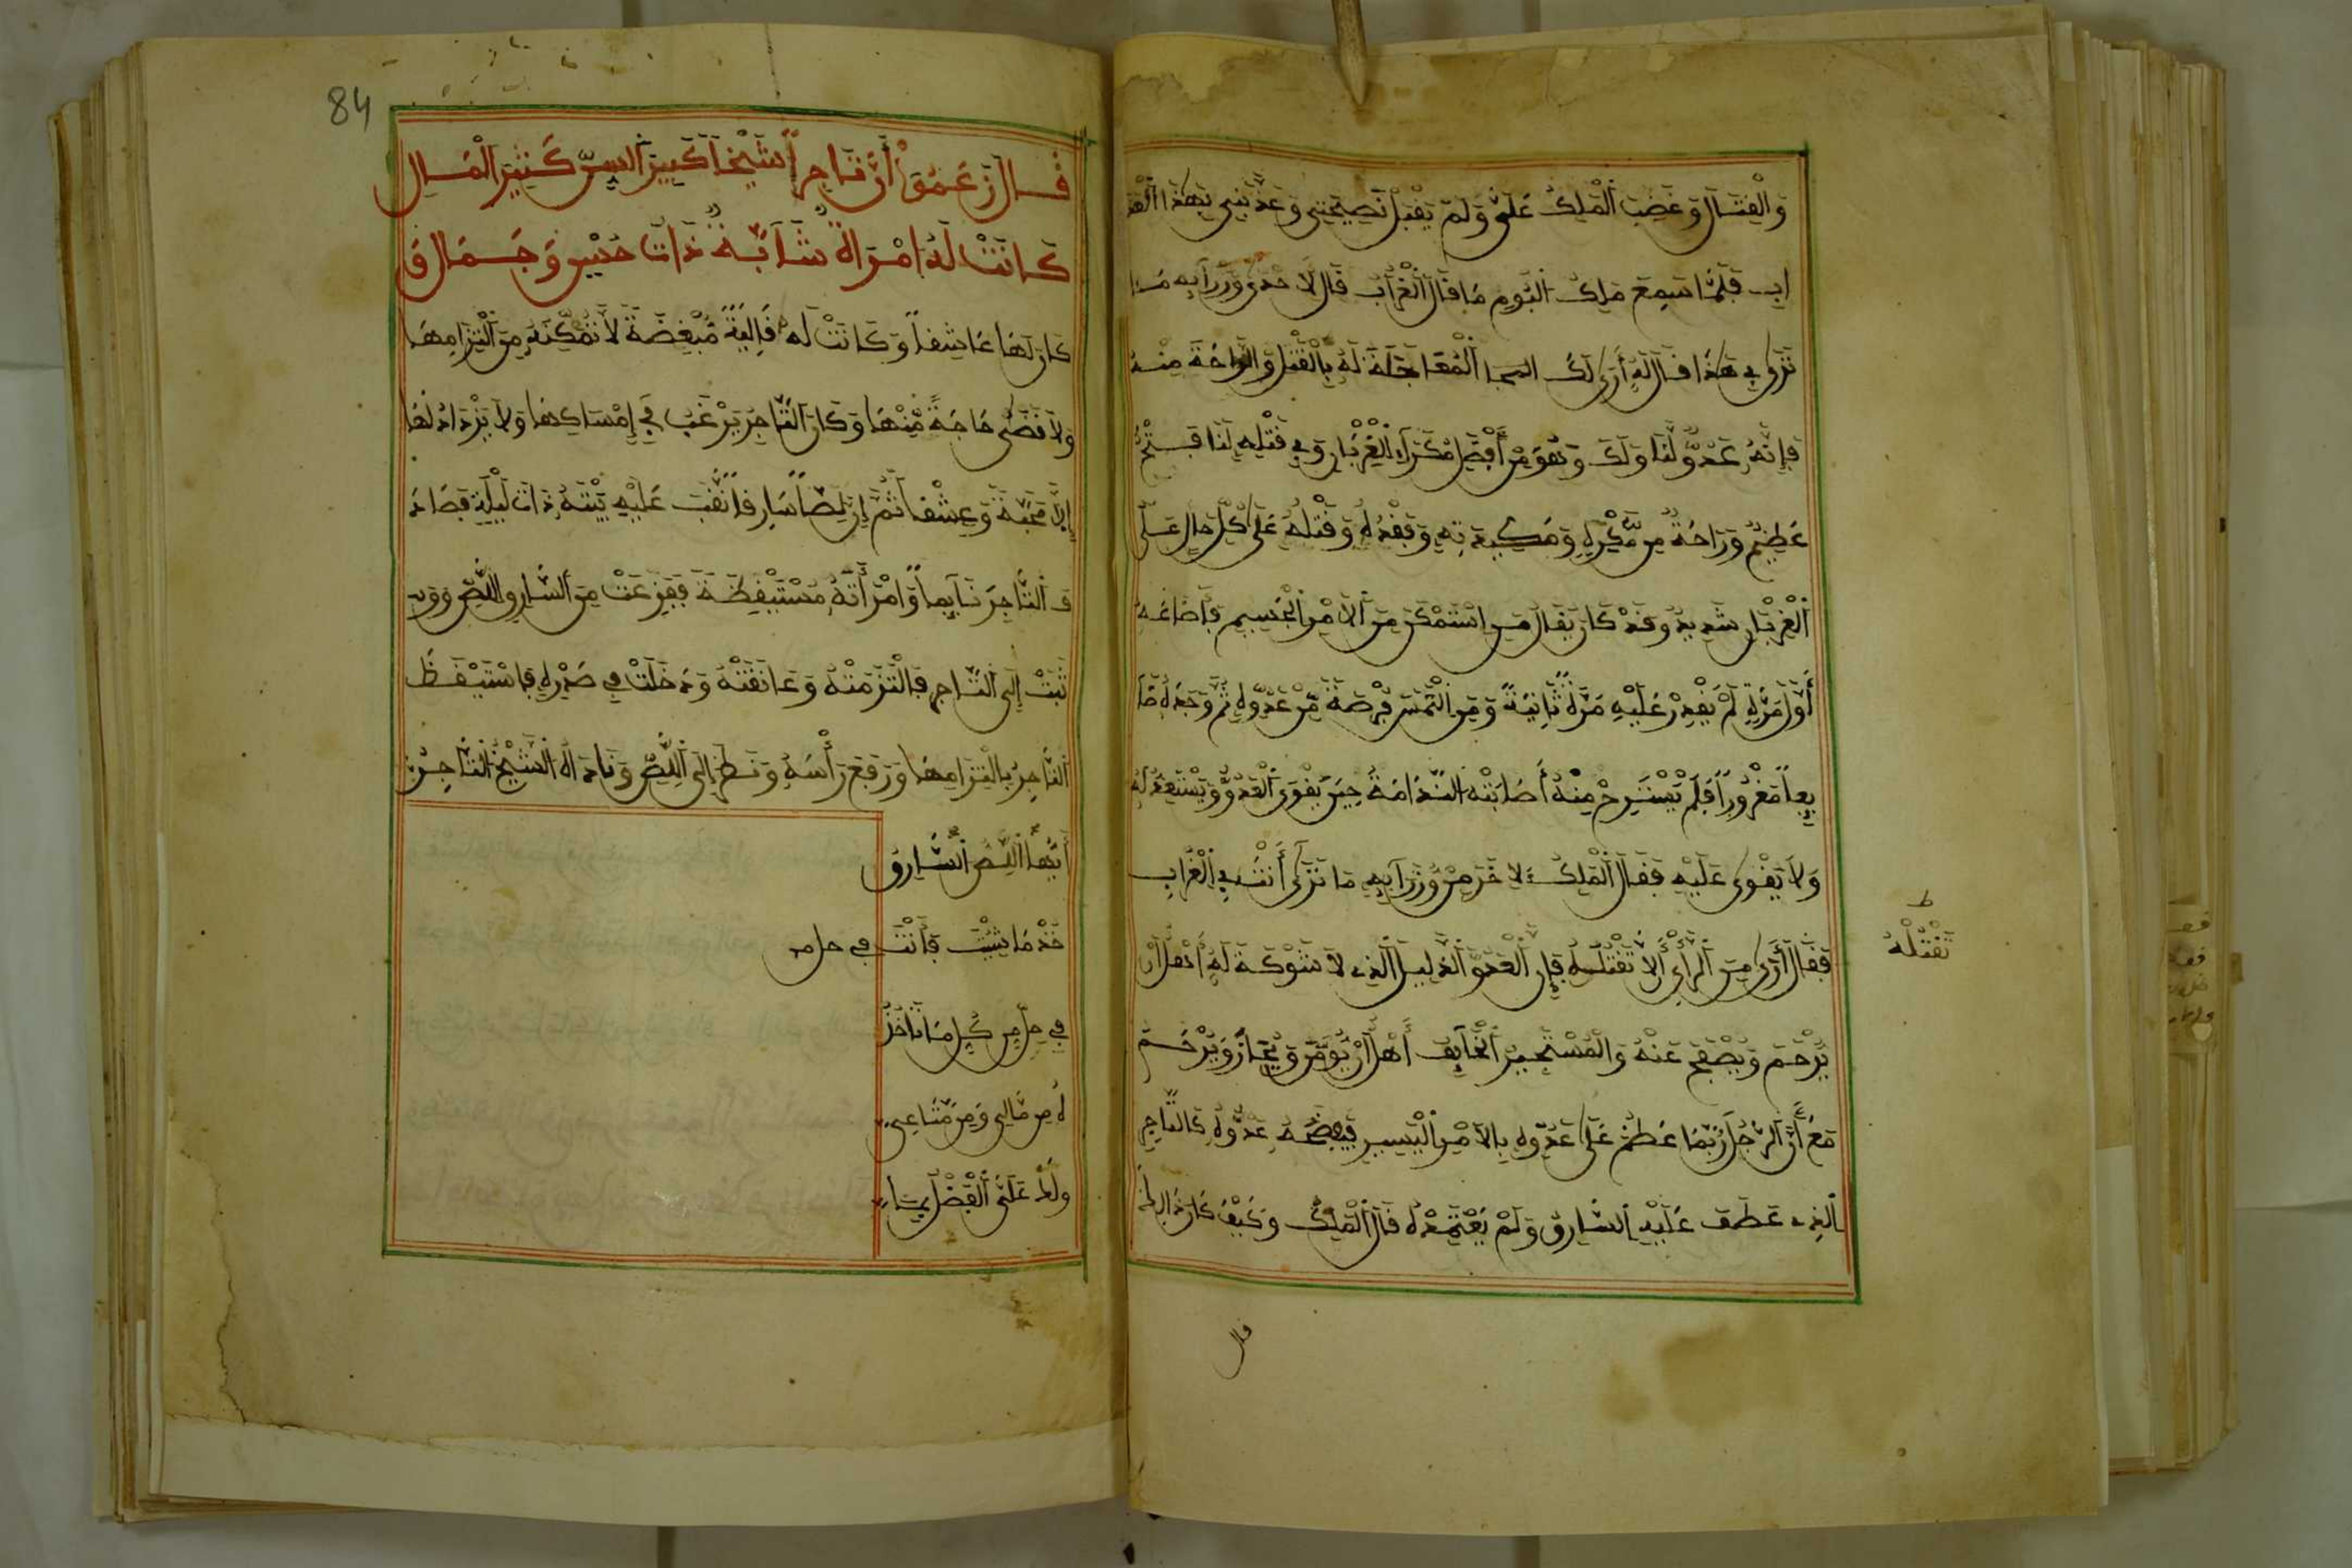 وَالْقِتَالَ وَغَضِبَ الْمَلِكُ عَلَيَّ وَلَمْ يَقْبَلْ نَصِيحَتِي وَعَذَّبَنِي بِهَذَا الْعَذَ
ابِ فَلَمَّا سَمِعَ مَلِكُ الْبُومِ مَا قَالَ الْغُرَابُ قَالَ لِأَحَدِ وُزَرَآئِهِ مَا
تَرَى فِي هَذَا قَالَ لَهُ أَرَى لَكَ الْمُعَاجَلَةَ لَهُ بِالْقَتْلِ وَالرَّاحَةَ مِنْهُ
فَإِنَّهُ عَدُوٌّ لَّنَا وَلَكَ وَهُوَ مِنْ أَفْضَلِ مَكَرَةِ الْغِرْبَانِ وَفِي قَتْلِهِ لَنَا فَتْحٌ
عَظِيمٌ وَرَاحَةٌ مِّن مَّكْرِهِ وَمَكِيدَتِهِ وَفَقْدُهُ وَقَتْلُهُ عَلَى كُلِّ حَالٍ عَلَى
الْغِرْبَانِ شَدِيدٌ وَقَدْ كَانَ يُقَالُ مَنِ اسْتَمْكَنَ مِنَ الْأَمْرِ الْجَسِيمِ فَأَضَاعَهُ
أَوَّلَ مَرَّةٍ لَمْ يَقْدِرْ عَلَيْهِ مَرَّةً ثَانِيَةً وَمَنِ الْتَمَسَ فُرْصَةً مِّنْ عَدُوِّهِ ثُمَّ وَجَدَهُ ضَا
يِعاً مَغْرُوراً فَلَمْ يَسْتَرِحْ مِنْهُ أَصَابَتْهُ النَّدَامَةُ حِينَ يَقْوَى الْعَدُوُّ وَيَسْتَعِدُّ لَهُ
وَلَا يَقْوَى عَلَيْهِ فَقَالَ الْمَلِكُ لِآخَرَ مِنْ وُزَرَآئِهِ مَا تَرَى أَنْتَ فِي الْغُرَابِ
فَقَالَ أَرَى مِنَ الرَّأْيِ أَلَّا تَقْتُلَهُ فَإِنَّ الْعَدُوَّ الذَّلِيلَ الَّذِي لَا شَوْكَةَ لَهُ أَهْلٌ أَنْ
تَقْتُلْهُ
يُرْحَمَ وَيُصْفَحَ عَنْهُ وَالْمُسْتَجِيرُ الْخَائِفُ أَهْلٌ أَنْ يُؤَمَّنَ وَيُجَارَ وَيُرْحَمَ
مَعَ أَنَّ الرَّجُلَ رُبَّمَا عَطَفَ عَلَى عَدُوِّهِ بِالْأَمْرِ الْيَسِيرِ عَدُوُّهُ كَالتَّاجِرِ
الَّذِي عَطَفَ عَلَيْهِ السَّارِقُ وَلَمْ يَعْتَمِدْهُ قَالَ الْمَلِكُ وَكَيْفَ كَانَ ذَالِكَ
قال
84
قَالَ زَعَمُوا أَنَّ تَاجِراً شَيْخاً كَبِيرَ السِّنِّ كَثِيرَ الْمَالِ
كَانَتْ لَهُ امْرَأَةٌ شَابَّةٌ ذَاتُ حُسْنٍ وَجَمَالٍ وَ
كَانَ لَهَا عَاشِقاً وَكَانَتْ لَهُ قَالِيَةً مُبْغِضَةً لَا تُمَكِّنُهُ مِنَ الْتِزَامِهَا
وَلَا قَضَى حَاجَةً مِّنْهَا وَكَانَ التَّاجِرُ يَرْغَبُ فِي إِمْسَاكِهَا وَلَا يَزْدَادُ لَهَا
إِلَّا مَحَبَّةً وَعِشْقاً ثُمَّ إِنَّ لِصّاً سَارِقاً نَقَبَ عَلَيْهِ بَيْتَهُ ذَاتَ لَيْلَةٍ فَصَادَ
فَ التَّاجِرَ نَائِماً وَامْرَأَتَهُ مُسْتَيْقِظَةً فَفَزِعَتْ مِنَ السَّارِقِ اللِّصِّ وَوَ
ثَبَتْ إِلَى التَّاجِرِ فَالْتَزَمَتْهُ وَعَانَقَتْهُ وَدَخَلَتْ فِي صَدْرِهِ فَاسْتَيْقَظَ
التَّاجِرُ بِالْتِزَامِهَا وَرَفَعَ رَأْسَهُ وَنَظَرَ إِلَى اللِّصِّ وَنَادَاهُ الشَّيْخُ التَّاجِرُ
أَيُّهَا اللِّصُّ السَّارِقُ
خُذْ مَا شِئْتَ فَأَنْتَ فِي حل من
فِي حِلٍّ مِن كُلِّ مَا تَأْخُذُ
هُ مِن مَّالِي وَمِن مَّتَاعِي
وَلَكَ عَلَيَّ الْفَضْلُ